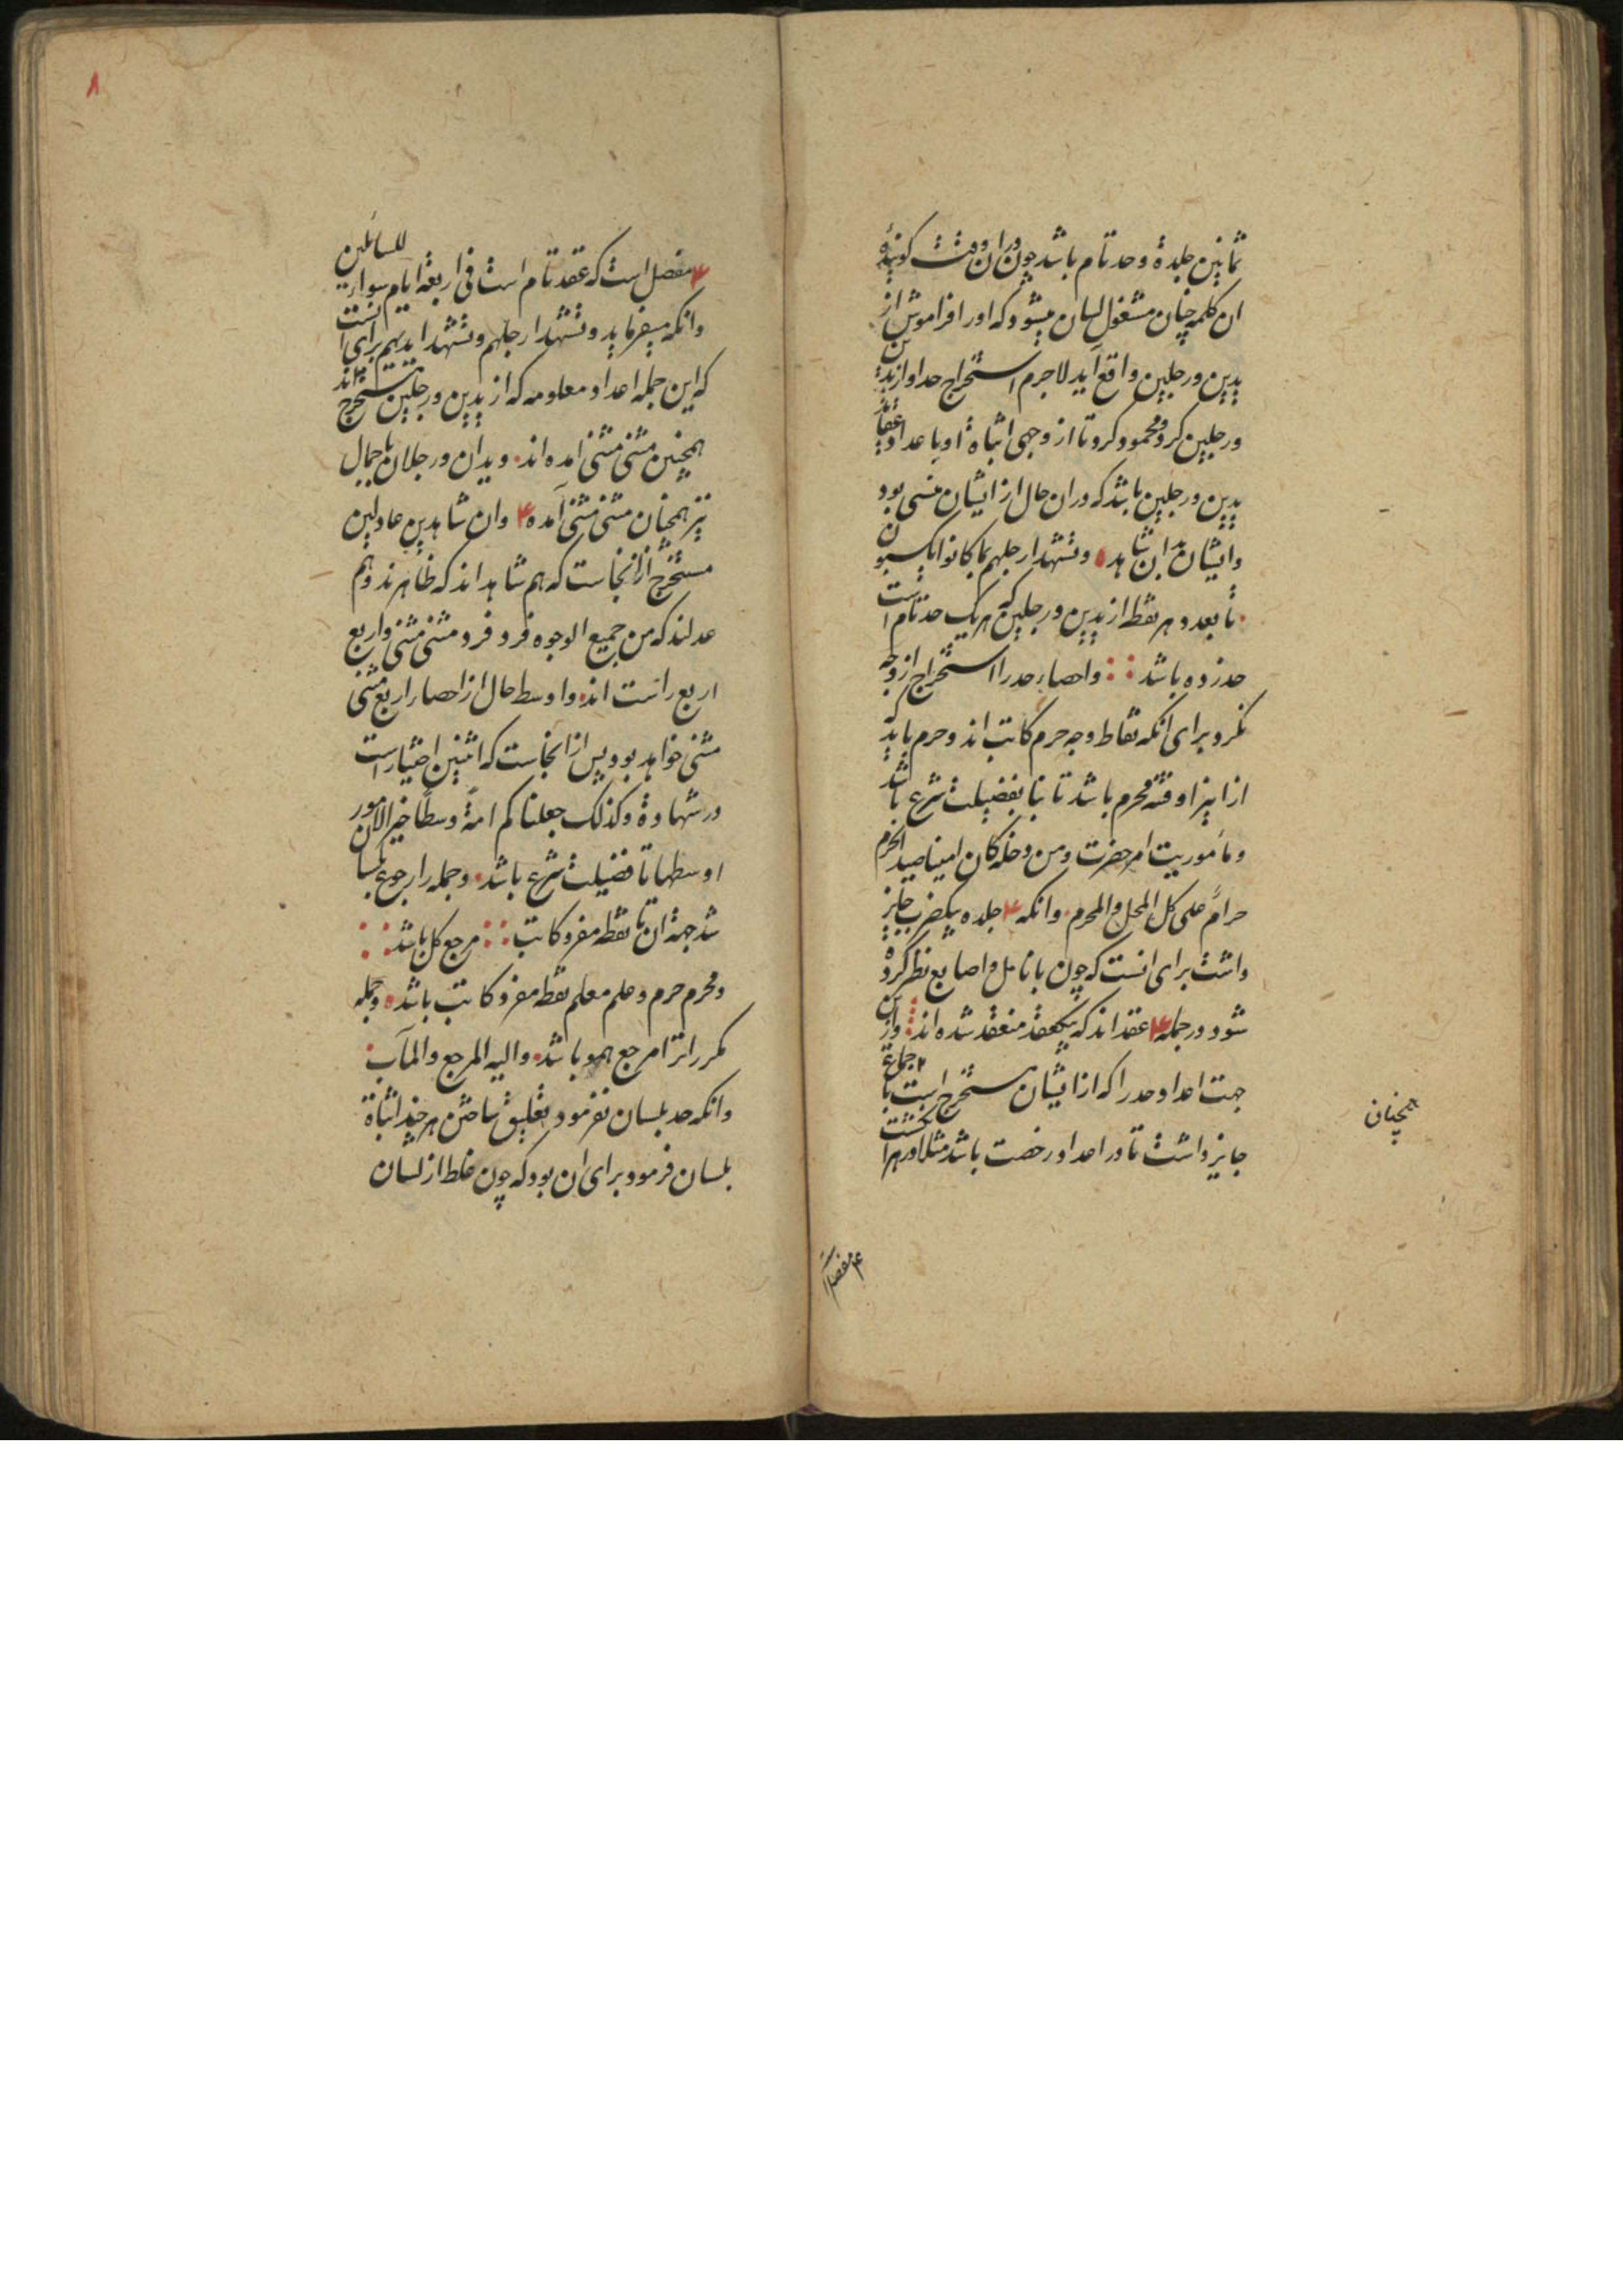 ثمانین جلدة و حد تام باشد چون در ان وقت کوینده
ان کلمه چنان مشغول لسان میشود که اورا فراموش از
یدین و رجلین واقع آید لاجرم استخراج حد او از یدین
و رجلین کرد و محمود کرد تا از وجهی انتباه او باعداد
یدین و رجلین باشد که در ان حال از ایشان منسی بود
و ایشان بدان شاهد و تشهد ارجلهم بما کانوا یکسبون
تا بعدد هر نقطه از یدین و رجلین که هر یک حد تام است
حد زده باشد و احصاء حد را استخراج از وجه
نکرد برای انکه نقاط وجه حرم کاتب اند و حرم باید
محرم باشد تا بفضیلت شرع باشد
و مأموریت امر حضرت و من دخله کان امنا صید الحرم
حرام علی کل المحل و المحرم و انکه ۴ جلده بیکضرب جایز
داشت برای انست که چون بانامل و اصابع نظر کرده
شود در جمله ۴ عقد اند که بیکعقد منعقد شده اند و ازین
جهت اعداد حد را که از ایشان مستخرج است باجماع
جایز داشت تا در اعداد رخصت باشد مثلا در هر انگشت
همچنان
۴ مفصل
۸
۴ مفصل است که عقد تام است فی اربعة ایام سواء للسائلین
و انکه میفرماید و تشهد ارجلهم و تشهد ایدیهم برای انست
که این جمله اعداد معلومه که از یدین و رجلین مستخرج اند
همچنین مثنی مثنی امده اند و یدان و رجلان باجمال
نیز همچنان مثنی مثنی آمده ۴ و ان شاهدین عادلین
مستخرج از انجاست که هم شاهد اند که ظاهرند و هم
عدلند که من جمیع الوجوه فرد فرد مثنی مثنی و اربع
اربع راست اند و اوسط حال از احصاء اربع مثنی
مثنی خواهد بود پس از انجاست که اثنین اختیار است
در شهادة و کذلک جعلناکم امة وسطا خیر الامور
اوسطها تا فضیلت شرع باشد و جمله را رجوع بلسان
شد جهة ان تا نقطه مفرد کاتب مرجع کل باشد
و محرم حرم و علم معلم نقطه مفرد کاتب باشد و جمله
مکرر انرا مرجع همو باشد و الیه المرجع و المآب
و انکه حد بلسان نفرمود تعلیق ساختن هر چند انتباة
بلسان فرمود برای ان بود که چون غلط از لسان